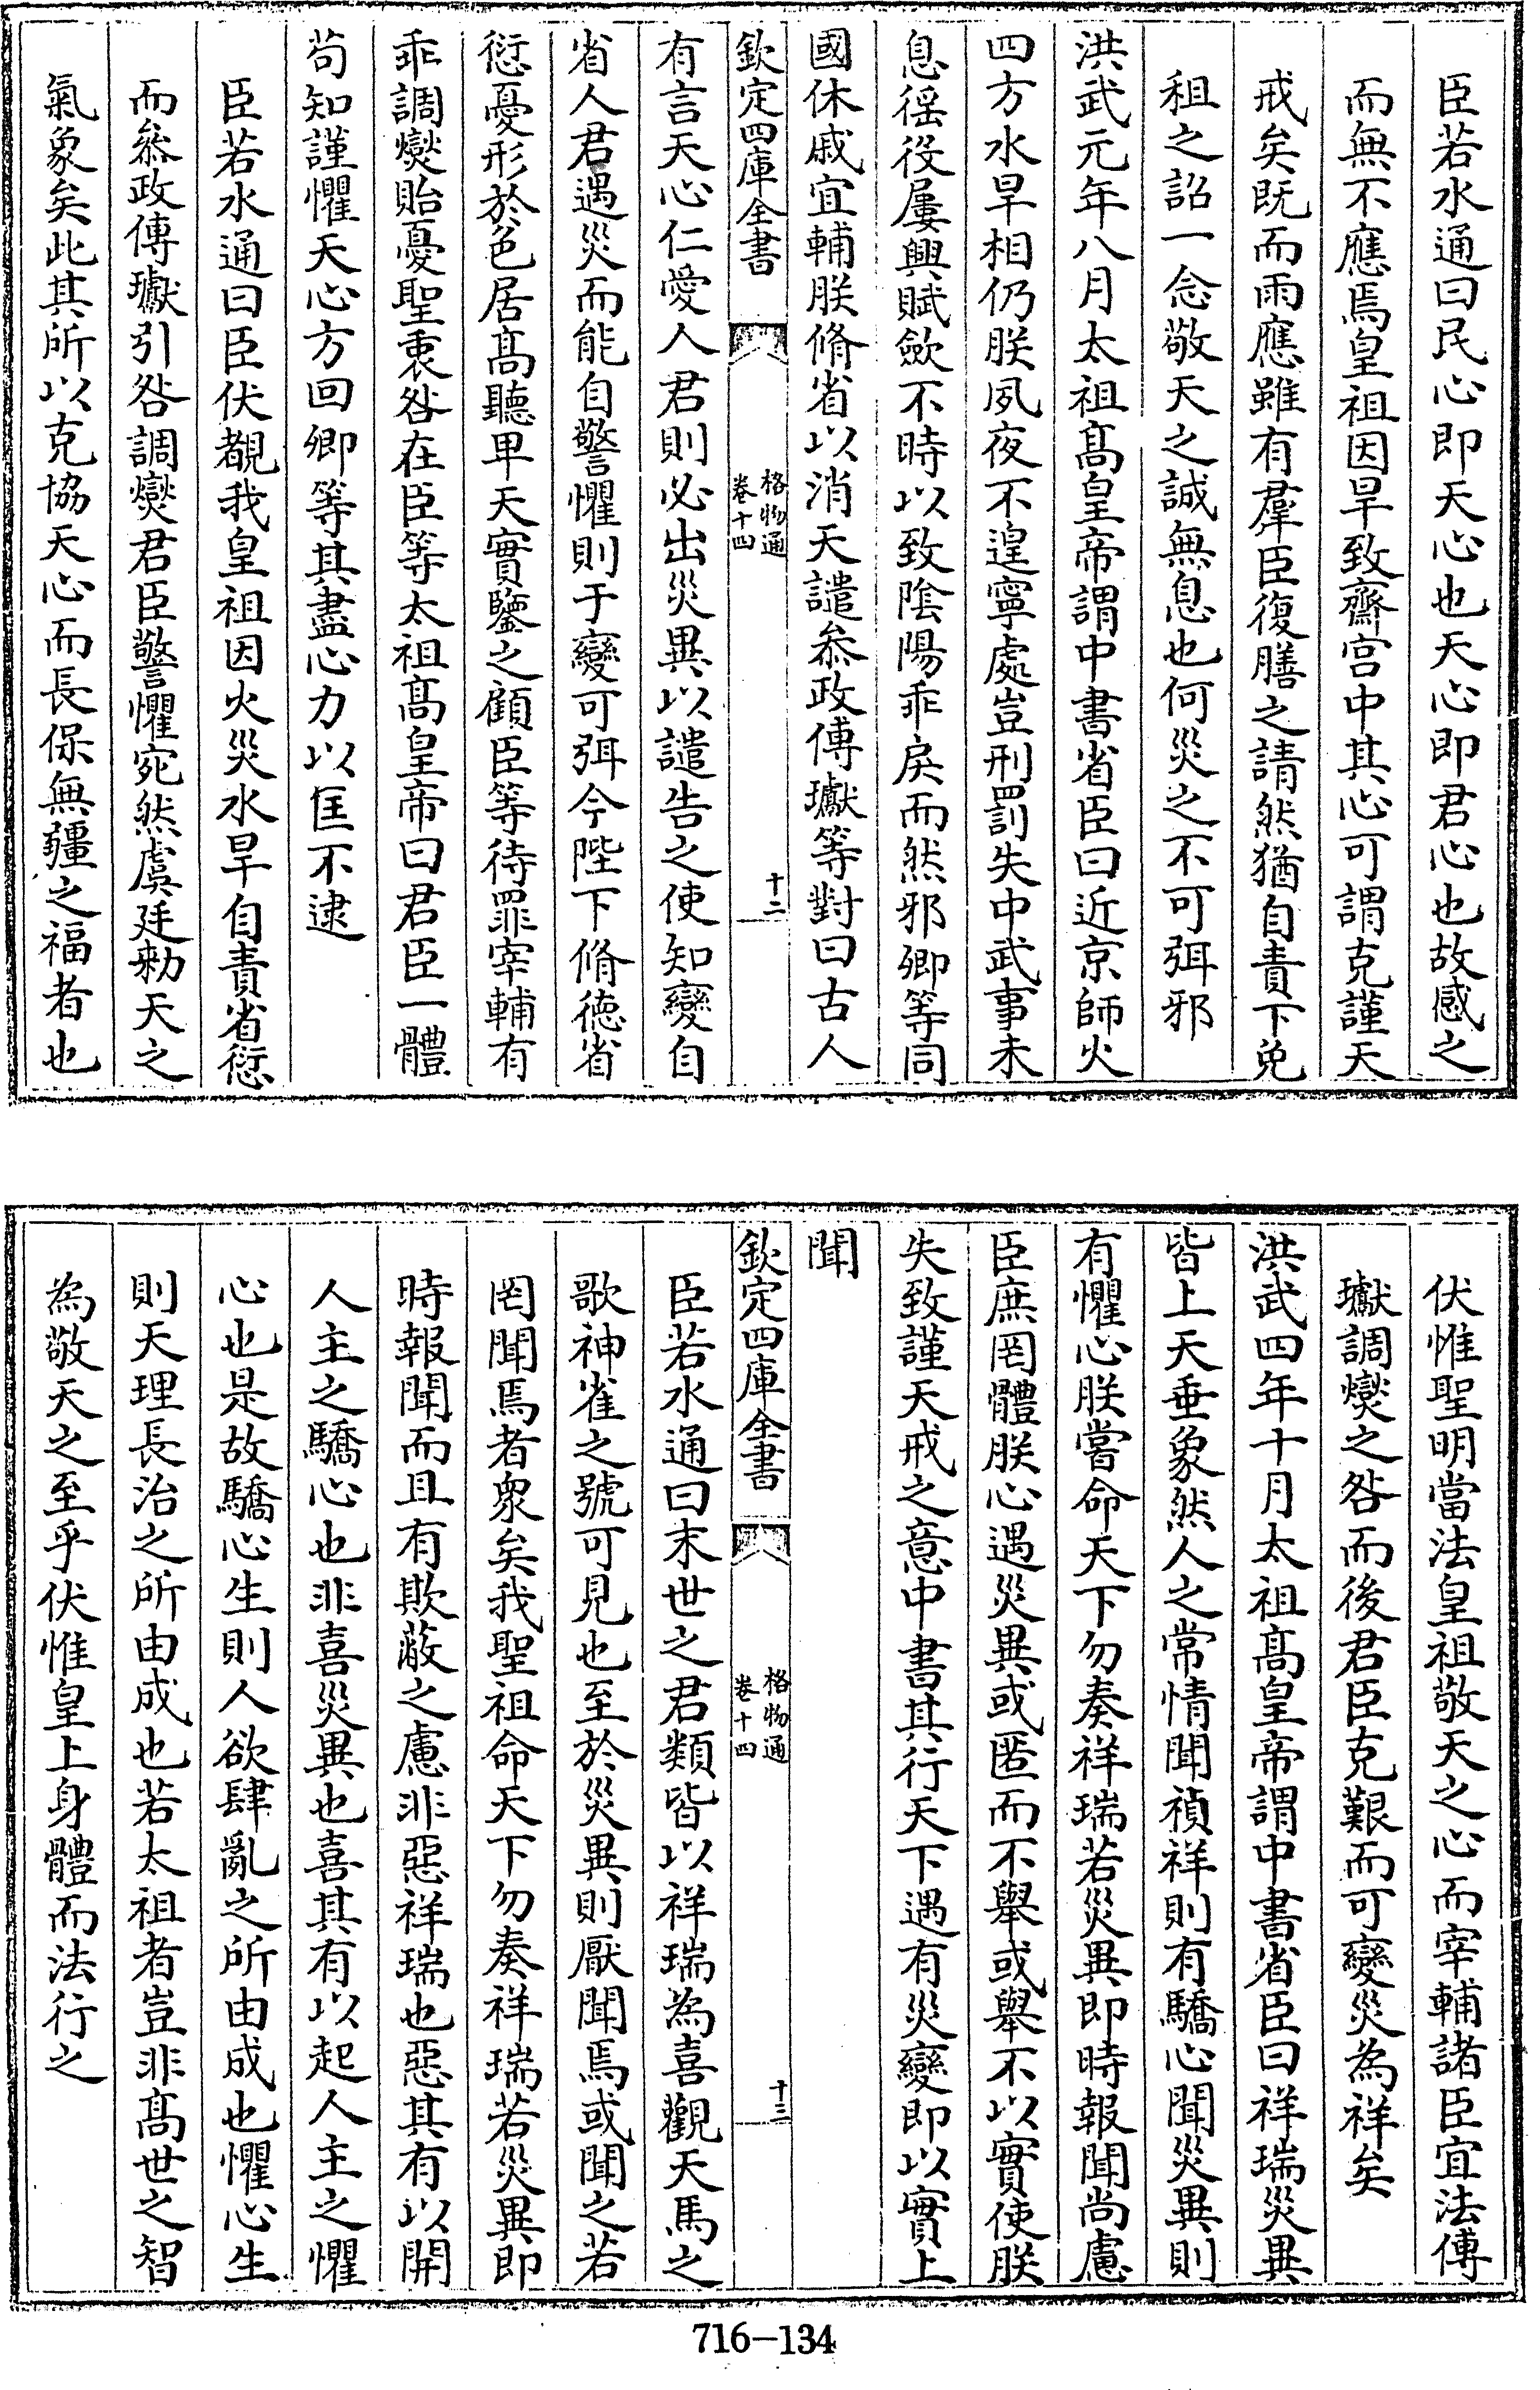 臣若水通曰民心即天心也天心即君心也故感之
而無不應焉皇祖因旱致齋宫中其心可謂克謹天
戒矣既而雨應雖有羣臣復膳之請然猶自責下免
租之詔一念敬天之誠無息也何災之不可弭邪
洪武元年八月太祖髙皇帝謂中書省臣曰近京師火
四方水旱相仍朕夙夜不遑寧處豈刑罰失中武事未
息徭役屢興賦歛不時以致陰陽乖戾而然邪卿等同
國休戚宜輔朕脩省以消天譴叅政傅瓛等對曰古人
欽定四庫全書
格物通
卷十四
十二
有言天心仁愛人君則必出災異以譴告之使知變自
省人君遇災而能自警懼則于變可弭今陛下脩徳省
愆憂形於色居髙聽卑天實鑒之顧臣等待罪宰輔有
乖調爕貽憂聖衷咎在臣等太祖髙皇帝曰君臣一體
苟知謹懼天心方回卿等其盡心力以匡不逮
臣若水通曰臣伏覩我皇祖因火災水旱自責省愆
而叅政傅瓛引咎調爕君臣警懼宛然虞廷勅天之
氣象矣此其所以克協天心而長保無疆之福者也
伏惟聖明當法皇祖敬天之心而宰輔諸臣宜法傅
瓛調爕之咎而後君臣克艱而可變災為祥矣
洪武四年十月太祖髙皇帝謂中書省臣曰祥瑞災異
皆上天垂象然人之常情聞禎祥則有驕心聞災異則
有懼心朕嘗命天下勿奏祥瑞若災異即時報聞尚慮
臣庶罔體朕心遇災異或匿而不舉或舉不以實使朕
失致謹天戒之意中書其行天下遇有災變即以實上
聞
欽定四庫全書
格物通
卷十四
十三
臣若水通曰末世之君類皆以祥瑞為喜觀天馬之
歌神雀之號可見也至於災異則厭聞焉或聞之若
罔聞焉者衆矣我聖祖命天下勿奏祥瑞若災異即
時報聞而且有欺蔽之慮非惡祥瑞也惡其有以開
人主之驕心也非喜災異也喜其有以起人主之懼
心也是故驕心生則人欲肆亂之所由成也懼心生
則天理長治之所由成也若太祖者豈非髙世之智
為敬天之至乎伏惟皇上身體而法行之
716-134